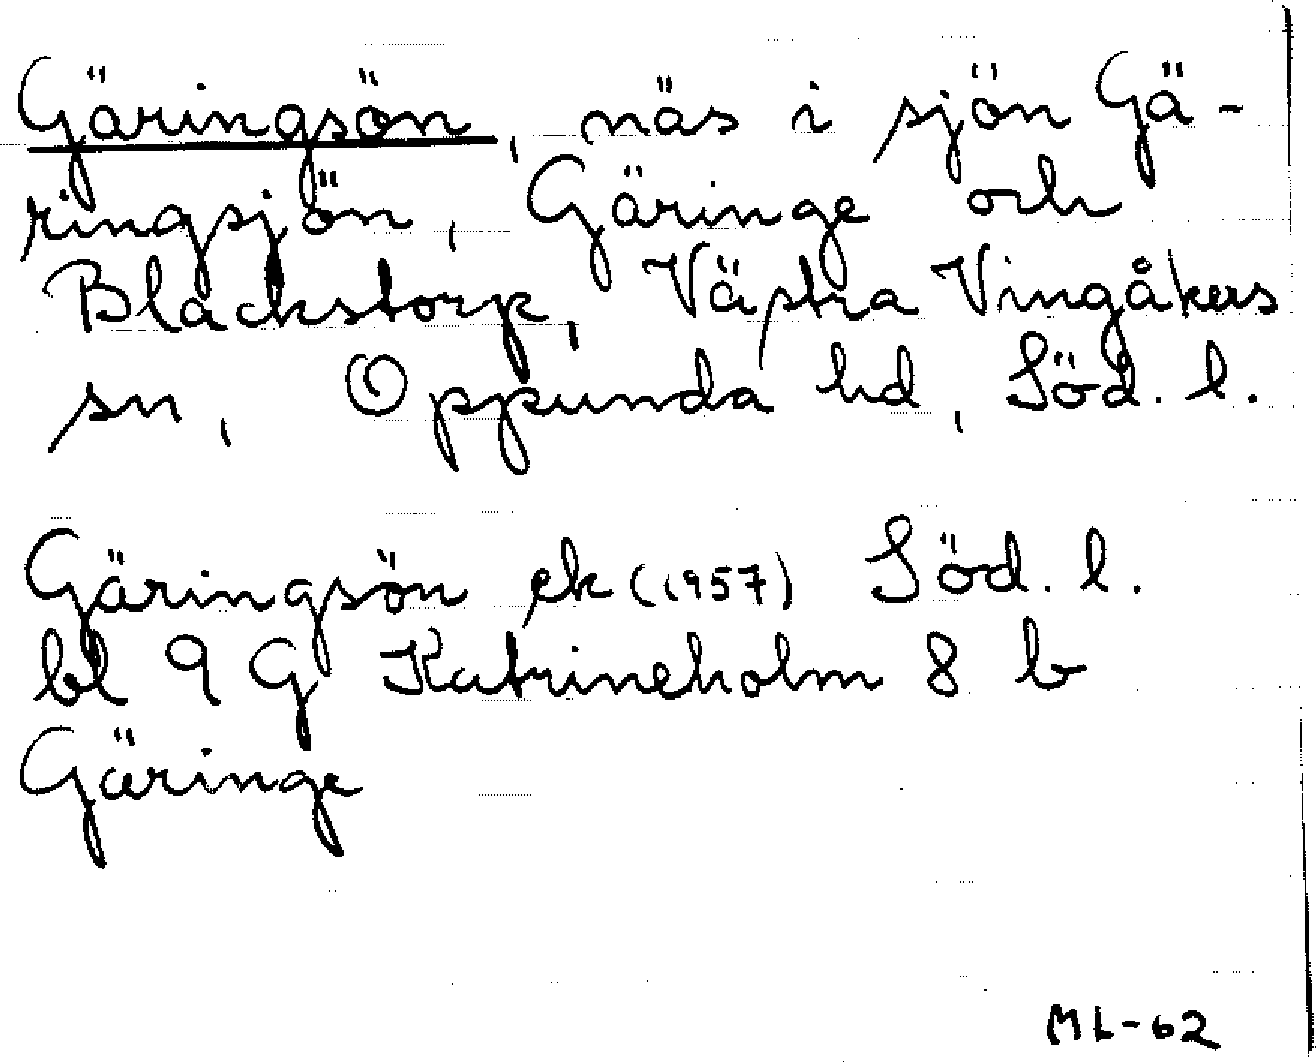 Gäringsön, näs i sjön Gä-
ringsjön, Gäringe och
Blackstorp, Västra Vingåkers
sn, Oppunda hd, Söd. l.
Gäringsön ek (1957) Söd. l.
bl 9 G Katrineholm 8 b
Gäringe
ML-62